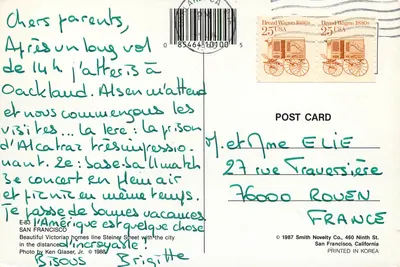 Chers parents,
Après un long vol
de 14h j'atteris à
Oackland. Alsen m'attend
et nous commençons les
visites... La 1ere: la prison
d'Alcatraz très impressio-
nnant. 2e: base-ball match
3e concert en plein air
et picnic en même temps.
Je passe de bonnes vacances
l'Amérique est quelque chose
d'incroyable!
Bisous Brigitte
E-83
SAN FRANCISCO
Beautiful Victorian homes line Steiner Street with the city
in the distance.
Photo by Ken Glaser, Jr. © 1988
0 85464 10100 5
Bread Wagon 1880s
25 USA
Bread Wagon 1880s
25 USA
POST CARD
M. et Mme ELIE
27 rue Traversière
76000 ROUEN
FRANCE
© 1987 Smith Novelty Co., 460 Ninth St.
San Francisco, California
PRINTED IN KOREA